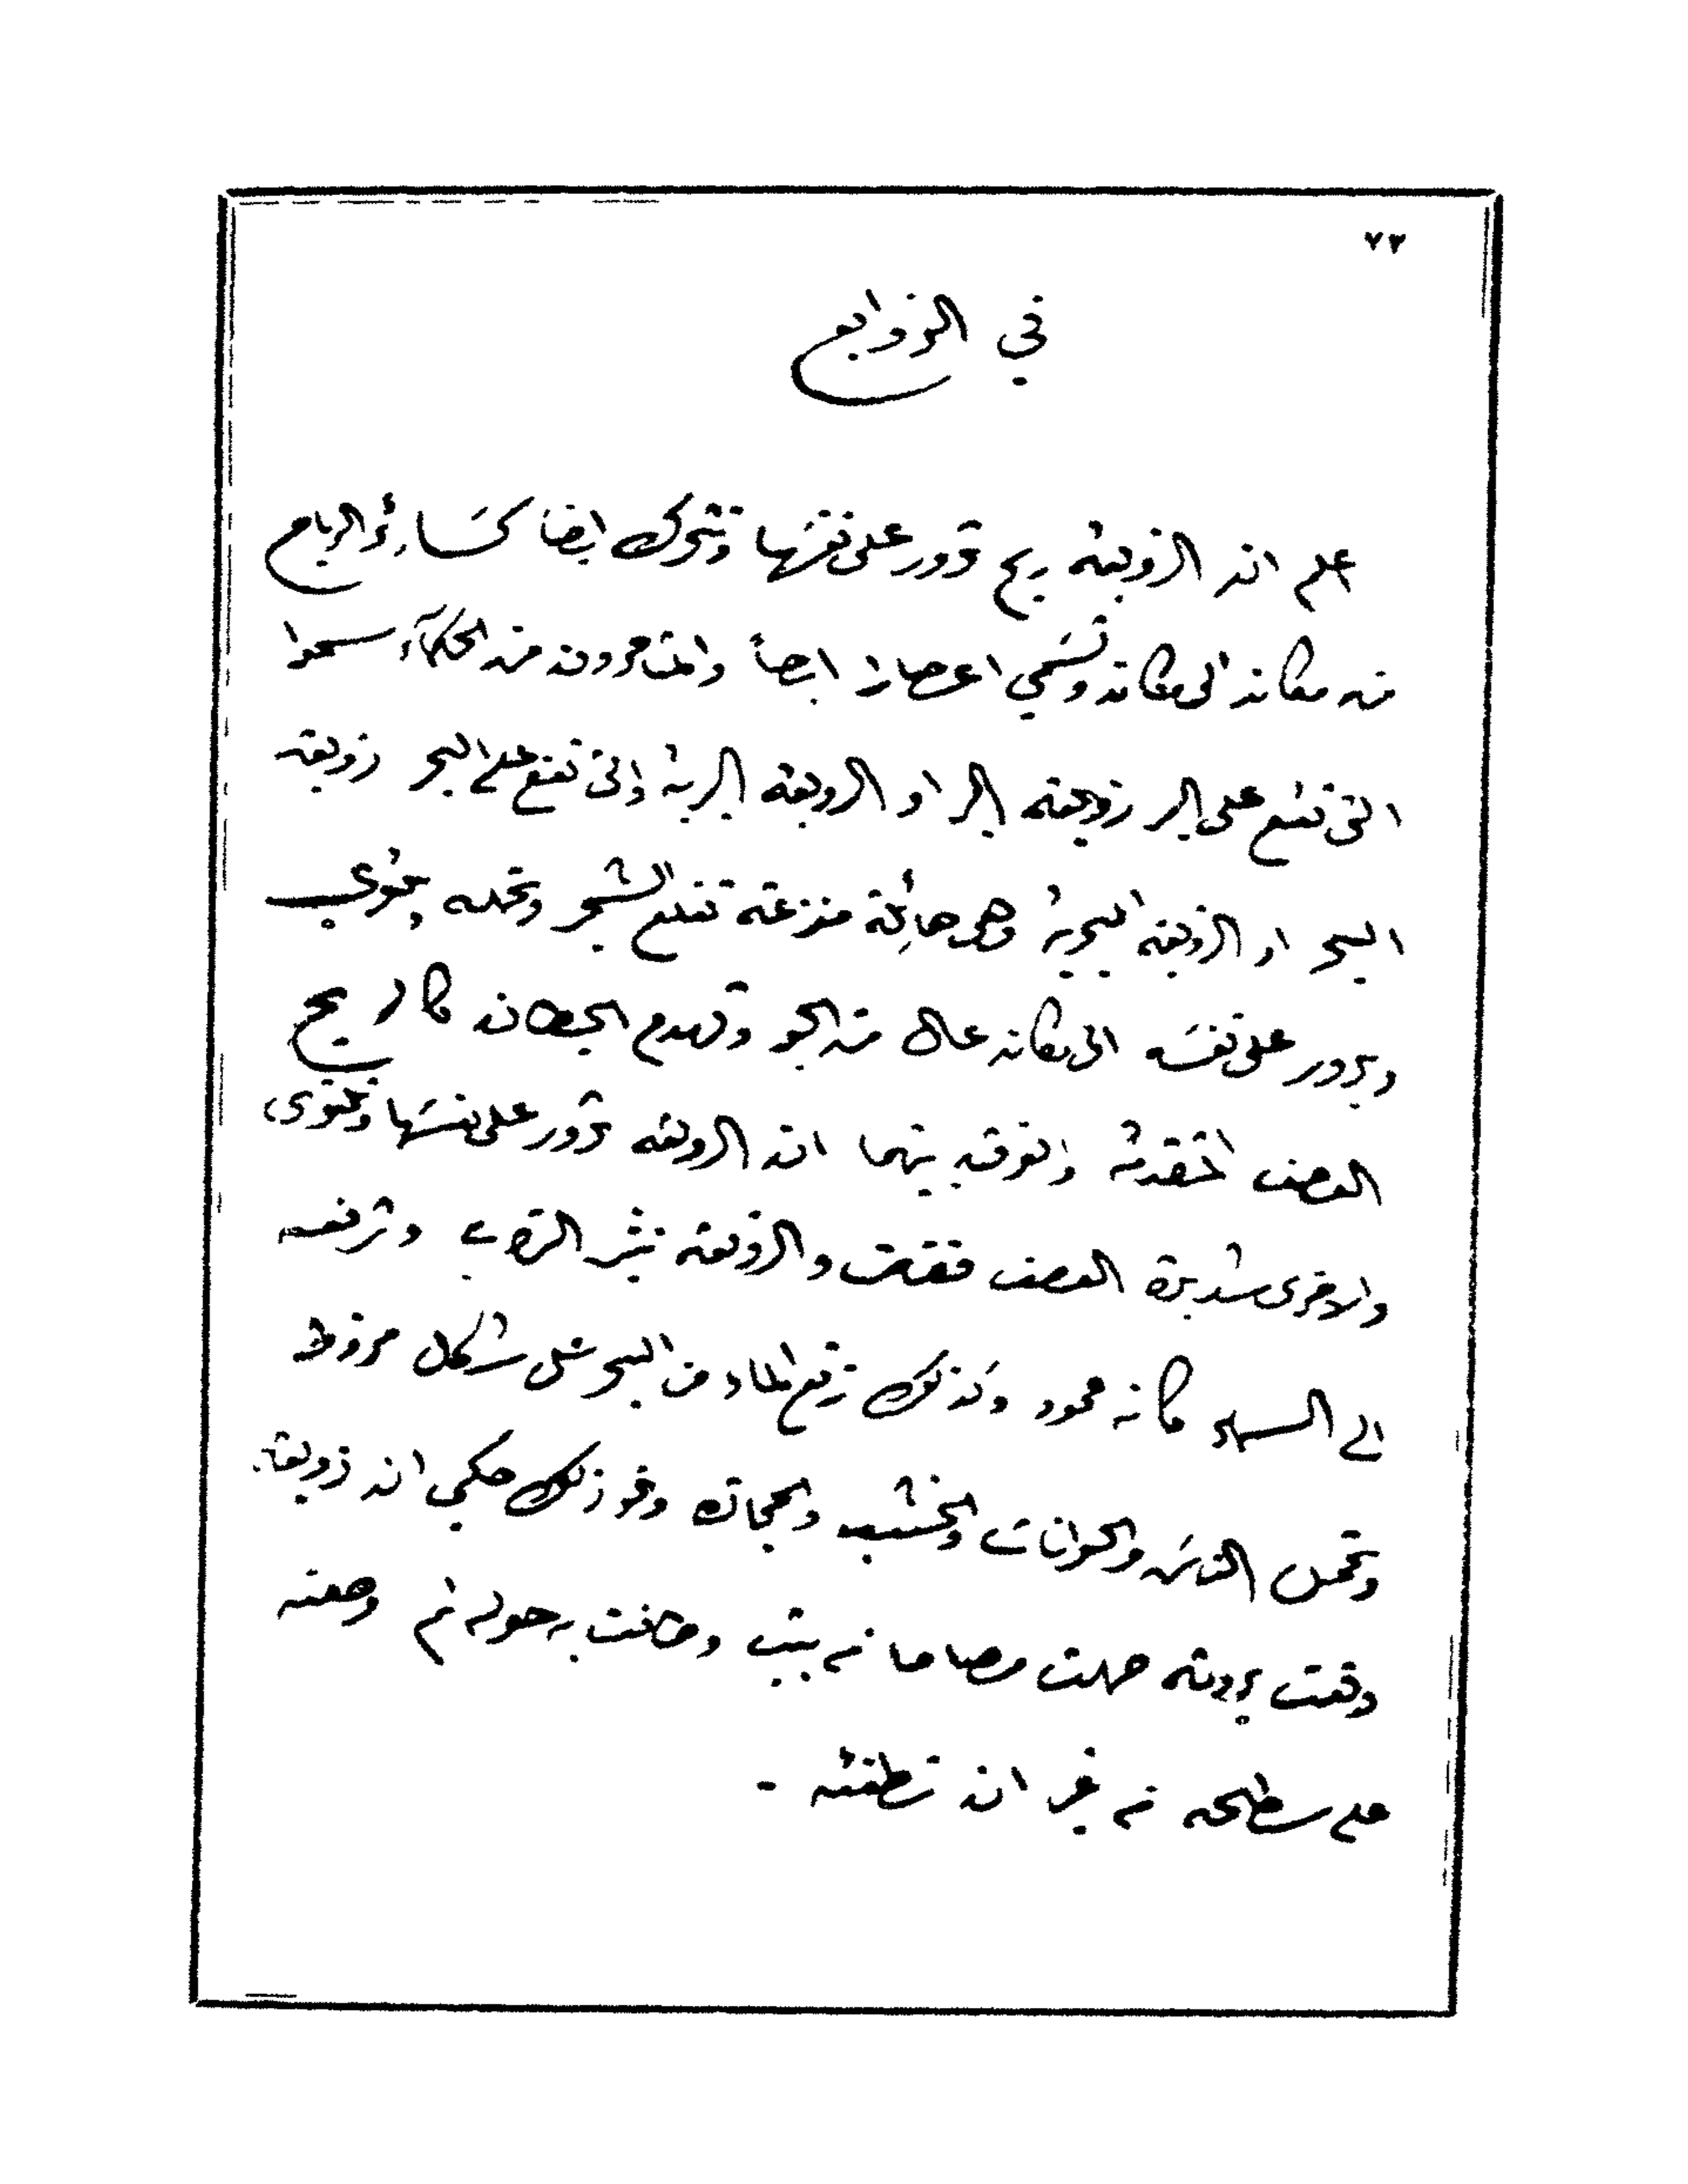 ٧٣
في الزوابع
اعلم ان الزوبعة ريح تدور على نفسها وتتحرك ايضا كسائر الرياح
من مكان الى مكان وتسمي اعصارا ايضاً والمتاخرون من الحكمآء سموا
التى تقع على البر زوبعة البر او الزوبعة البرية والتى تقع على البحر زوبعة
البحر او الزوبعة البحرية وهى هائلة مفزعة تقلع الشجر وتحمله ويحتوى
ويدور على نفسه الى مكان عال من الجو وتهدم الحيطان كالريح
العصف المتقدمة والفرق بينهما ان الزوبعة تدور على نفسها وتحتوى
والاخرى شديدة العصف فقط والزوبعة تثير التراب وترفعه
الى السماء كانه عمود وكذلك ترفع الماء من البحر على شكل مخروط
وتحمل الناس والحيوانات والخشب والحجارة ونحو ذلك حكي ان زوبعة
وقعت برومة حملت مصباحا من بيت وطافت به حوله ثم وضعته
على سطحه من غير ان تطفئه -